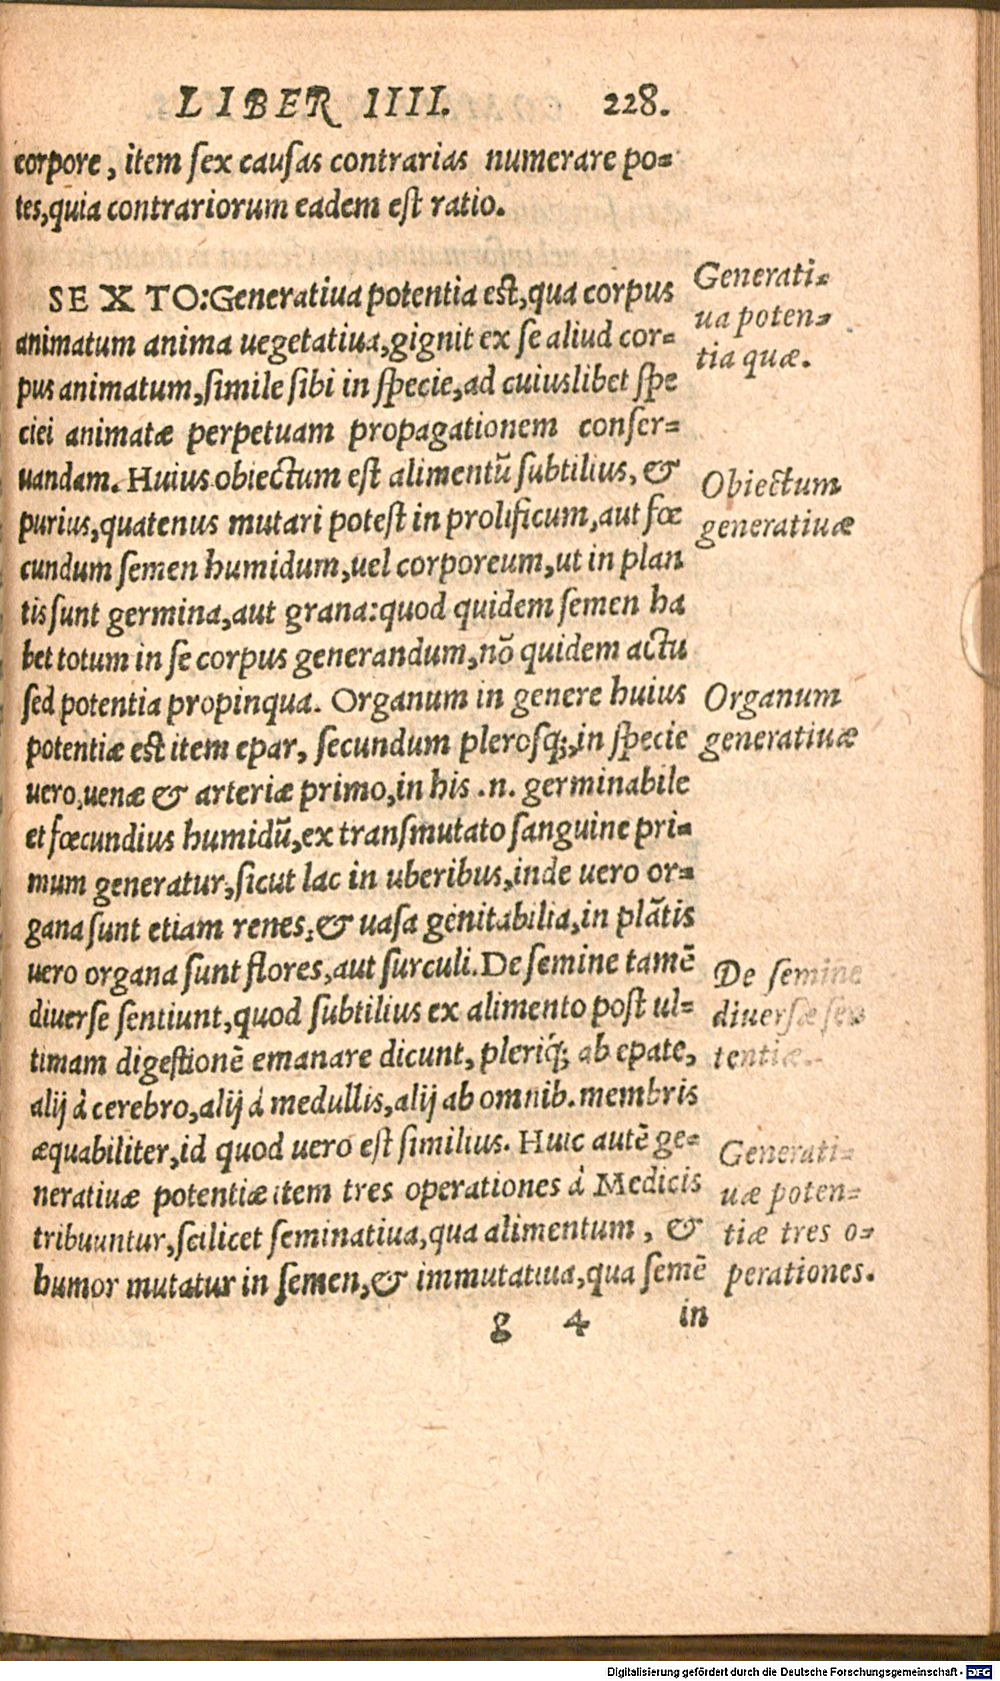 LIBER IIII. 228.
corpore, item sex causas contrarias numerare po=
tes, quia contrariorum eadem est ratio.
SEXTO: Generatiua potentia est, qua corpus
animatum anima uegetatiua, gignit ex se aliud cor=
pus animatum, simile sibi in specie, ad cuiuslibet spe
ciei animatæ perpetuam propagationem conser=
uandam. Huius obiectum est alimentū subtilius, &
purius, quatenus mutari potest in prolificum, aut fœ
cundum semen humidum, uel corporeum, ut in plan
tis sunt germina, aut grana: quod quidem semen ha
bet totum in se corpus generandum, nō quidem actu
sed potentia propinqua. Organum in genere huius
potentiæ est item epar, secundum plerosq;, in specie
uero, uenæ & arteriæ primo, in his .n. germinabile
et fœcundius humidū, ex transmutato sanguine pri=
mum generatur, sicut lac in uberibus, inde uero or=
gana sunt etiam renes, & uasa genitabilia, in plātis
uero organa sunt flores, aut surculi. De semine tamē
diuerse sentiunt, quod subtilius ex alimento post ul=
timam digestionē emanare dicunt, pleriq́; ab epate,
alij à cerebro, alij à medullis, alij ab omnib. membris
æquabiliter, id quod uero est similius. Huic autē ge=
neratiuæ potentiæ item tres operationes à Medicis
tribuuntur, scilicet seminatiua, qua alimentum, &
humor mutatur in semen, & immutatiua, qua semē
g 4 in
Generati=
ua poten=
tia quæ.
Obiectum
generatiuæ
Organum
generatiuæ
De semine
diuersæ sen
tentiæ.
Generati=
uæ poten=
tiæ tres o=
perationes.
Digitalisierung gefördert durch die Deutsche Forschungsgemeinschaft - DFG